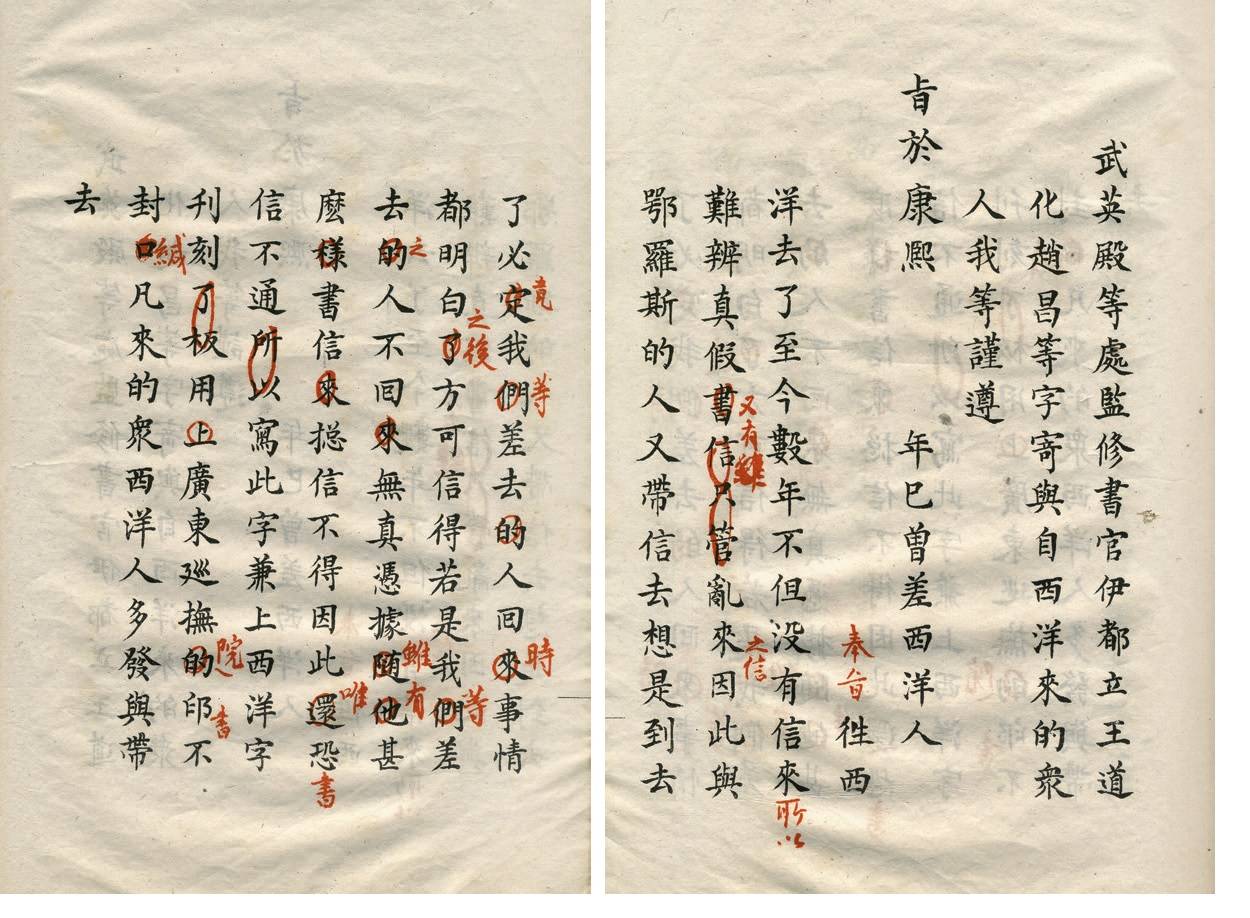 武英殿等處監修書官伊都立王道
化趙昌等字寄與自西洋來的衆
人我等謹遵
旨於康熙 年巳曾差西洋人
奉旨徃西
洋去了至今數年不但没有信來所以
又有
之信
難辨真假書信只管亂來因此與
鄂羅斯的人又帶信去想是到去
竟
等
時
了必定我們差去的人回來事情
之後
等
都明白了方可信得若是我們差
之
雖有
去的人不回來無真憑據随他甚
唯
麽樣書信來揔信不得因此還恐書
信不通所以寫此字兼上西洋字
院
書
刊刻了板用上廣東廵撫的印不
緘
封口凡來的衆西洋人多發與帶
去